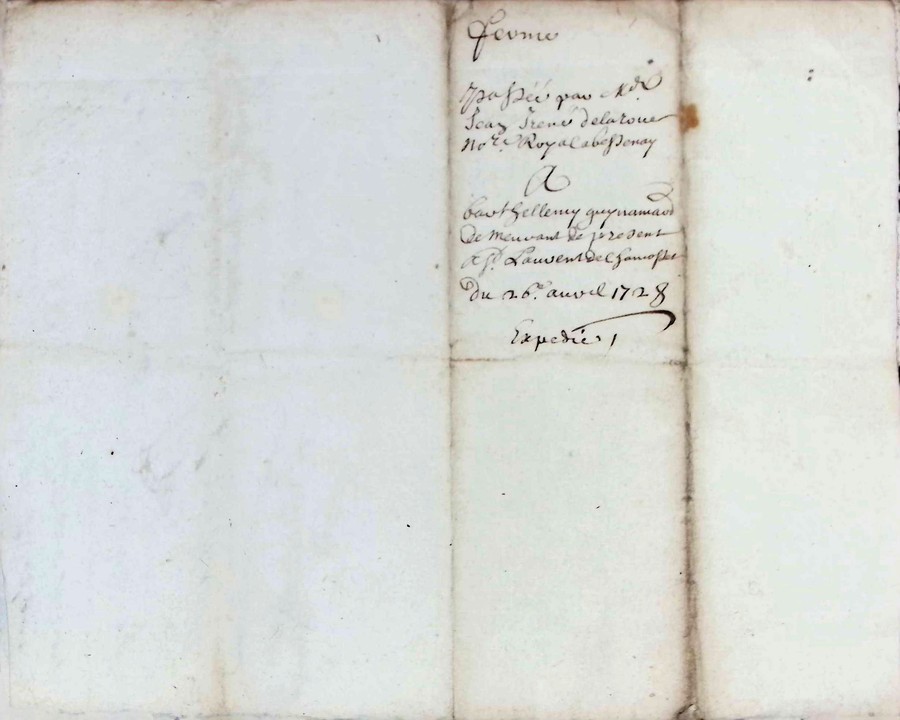 ferme
passée par Me
Jean Irené delaroue
Nore Royal a bessenay
A
barthellemy guynamard
de meuvant de present
a St Laurent de Chamosset
Du 26e auril 1728
Expedié